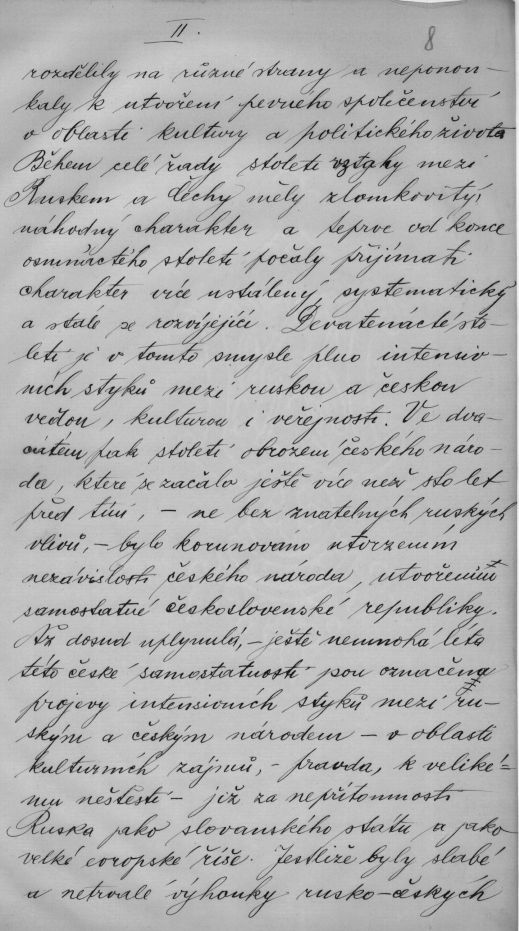 II.
8
rozdělily na různé strany a neponou-
kaly k utvoření pevného společenství
v oblasti kultury a politického života
Během celé řady století vztahy mezi
Ruskem a Čechy měly zlomkovitý,
náhodný charakter a teprve od konce
osmnáctého století počaly přijímati
charakter více ustálený, systematický
a stále se rozvíjející. Devatenácté sto-
letí je v tomto smysle plno intensiv-
ních styků mezi ruskou a českou
vědou, kulturou i veřejností. Ve dva-
cátém pak století obrození českého náro-
da, které se začalo ještě více než sto let
před tím, – ne bez znatelných ruských
vlivů, – bylo korunováno utvrzením
nezávislosti českého národa, utvořením
samostatné československé republiky.
Až dosud uplynulá, – ještě nemnohá léta
této české samostatnosti jsou označena
projevy intensivních styků mezi ru-
ským a českým národem – v oblasti
kulturních zájmů, – pravda, k veliké-
mu neštěstí – již za nepřítomnosti
Ruska jako slovanského státu a jako
velké evropské říše. Jestliže byly slabé
a netrvalé výhonky rusko-českých